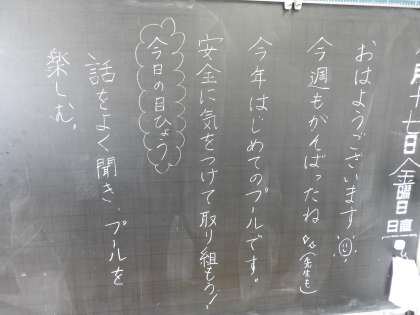 月十七日金曜日 晴
おはようございます
今週もがんばったね (先生も)
今年はじめてのプールです。
安全に気をつけて取り組もう!
今日の目ひょう
話をよく聞き、プールを
楽しむ。